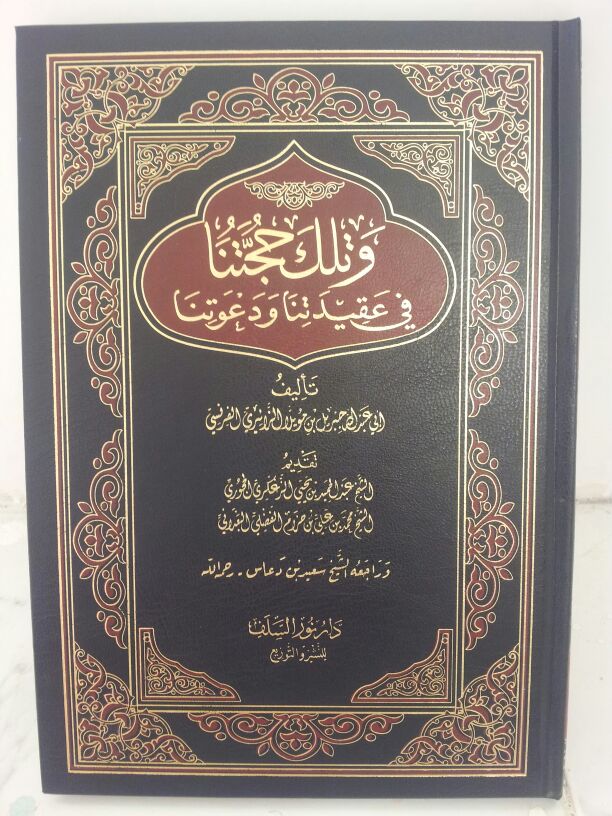 وَتِلكَ حُجَّتُنَا
فِي عَقِيدَتِنَا وَدَعْوَتِنَا
تَأليفُ
أبي عبدالله جبريل بن مويلا الزائيري الفرنسي
تقديم
الشيخ عبدالحميد بن يحيى الزعكري الحجوري
الشيخ محمد بن علي بن حزام الفضلي البعداني
وراجعه الشيخ سعيد بن دعاس - رحمه الله
دار نور السلف
للنشر والتوزيع